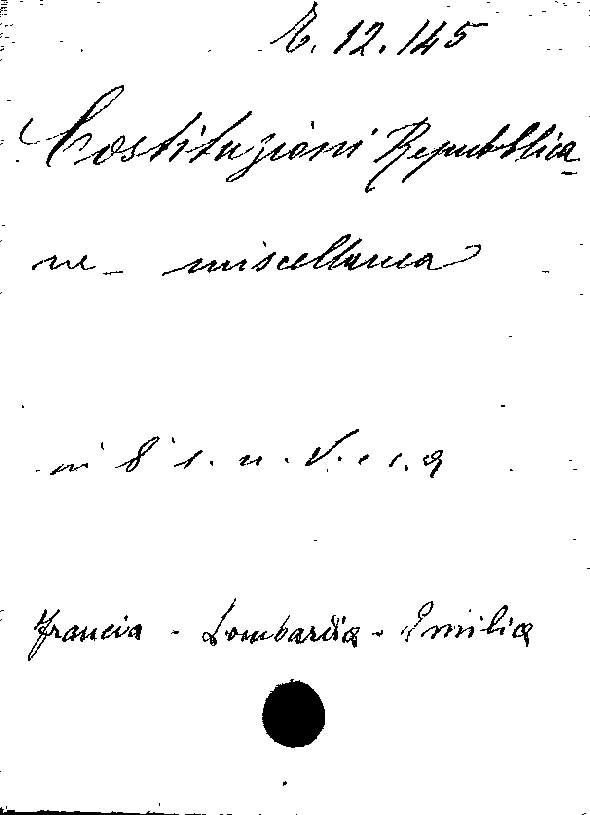 E. 12. 145
Costituzioni Repubblica-
ne - miscellanea
in 8° s. n.
Francia - Lombardia - Emilia